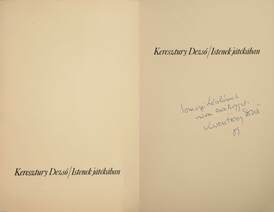 Keresztury Dezső/Istenek játékában
Keresztury Dezső/Istenek játékában
Keresztury Dezső